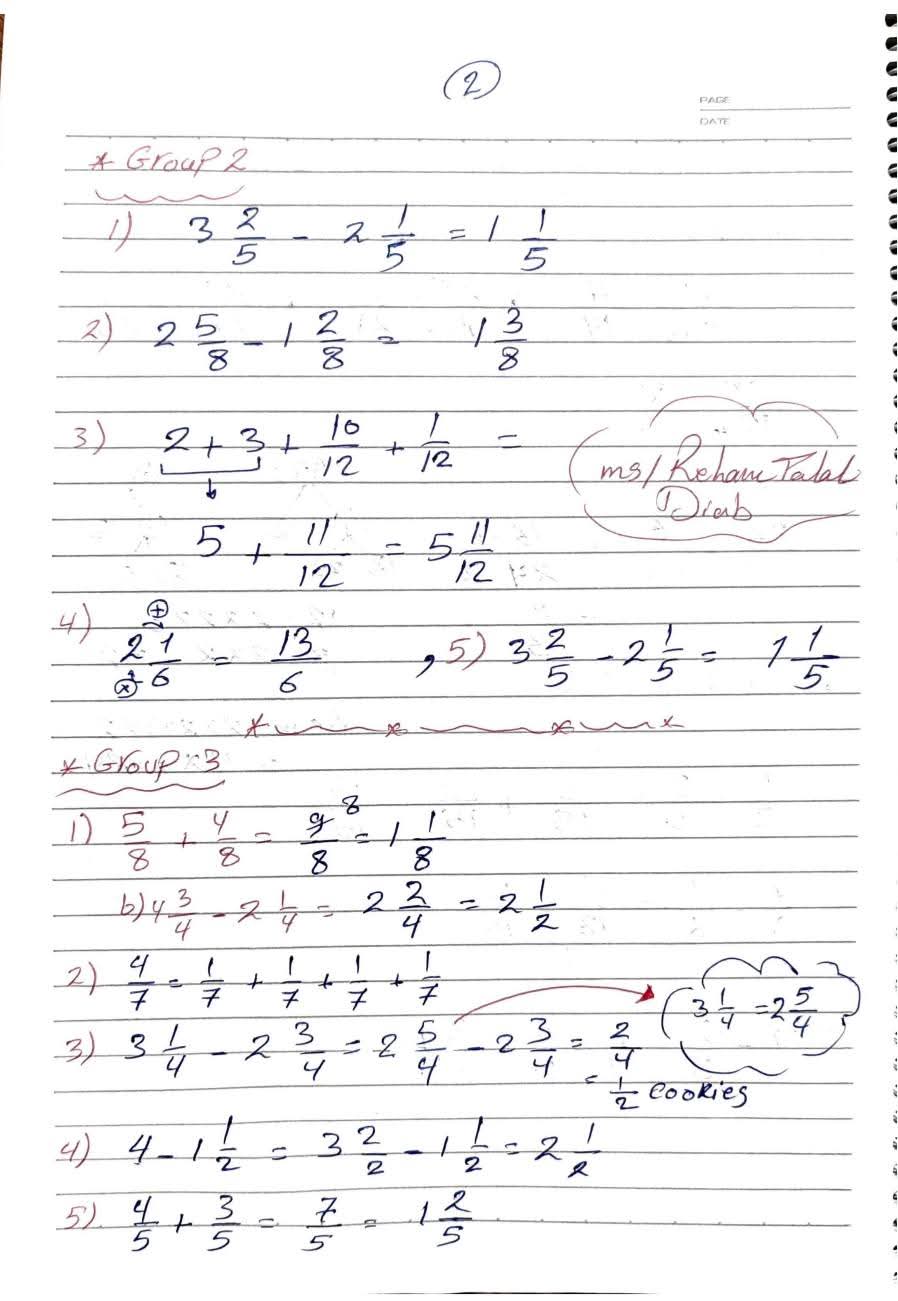 2
PAGE
DATE
* Group 2
1) 3 2/5 - 2 1/5 = 1 1/5
2) 2 5/8 - 1 2/8 = 1 3/8
3) 2 + 3 + 10/12 + 1/12 =
ms/ Reham Talal
Diab
5 + 11/12 = 5 11/12
4) 2 1/6 = 13/6 , 5) 3 2/5 - 2 1/5 = 1 1/5
+
x
* Group 3
1) 5/8 + 4/8 = 9/8 = 1 1/8
8
b) 4 3/4 - 2 1/4 = 2 2/4 = 2 1/2
2) 4/7 = 1/7 + 1/7 + 1/7 + 1/7
3 1/4 = 2 5/4
3) 3 1/4 - 2 3/4 = 2 5/4 - 2 3/4 = 2/4
= 1/2 cookies
4) 4 - 1 1/2 = 3 2/2 - 1 1/2 = 2 1/2
5) 4/5 + 3/5 = 7/5 = 1 2/5